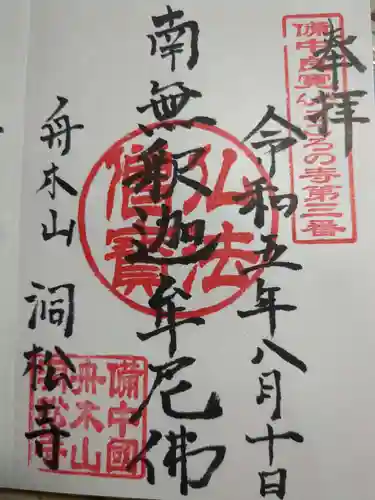 奉拝
備中良寛さんこころの寺第三番
令和五年八月十日
南無釈迦牟尼佛
弘法
僧寶
舟木山
洞松寺
備中國
舟木山
洞松寺